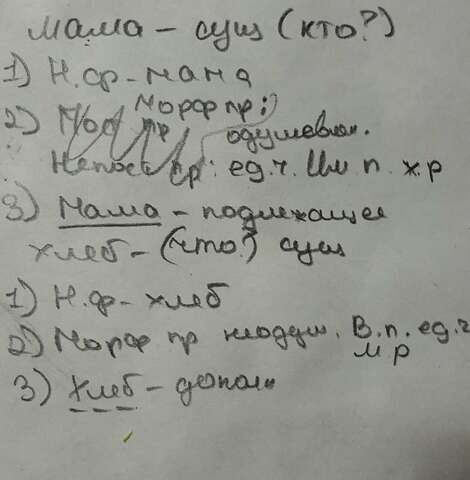 Мама – сущ (кто?)
1) Н.ф – мама
Морф пр:
2) одушевлен.
пр: ед.ч. Им. п. ж.р
3) Мама – подлежащее
хлеб – (что?) сущ
1) Н.ф – хлеб
2) Морф пр неодуш. В.п. ед.ч
м.р
3) Хлеб – дополн